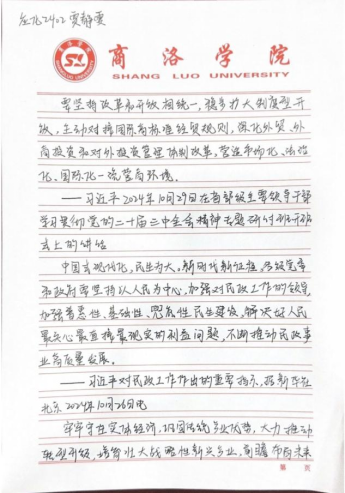 应化2402 贾静雯
商洛学院
SHANG LUO UNIVERSITY
要坚持改革和开放相统一,稳步扩大制度型开
放,主动对接国际高标准经贸规则,深化外贸、外
商投资和对外投资管理体制改革,营造市场化、法治
化、国际化一流营商环境。
——习近平2024年10月29日在省部级主要领导干部
学习贯彻党的二十届三中全会精神专题研讨班开班
式上的讲话
中国式现代化,民生为大。新时代新征程,各级党委
和政府要坚持以人民为中心,加强对民政工作的领导,
加强普惠性、基础性、兜底性民生建设,解决好人民
最关心最直接最现实的利益问题,不断推动民政事
业高质量发展。
——习近平对民政工作作出的重要指示,据新华社
北京2024年10月26日电
牢牢守住实体经济,巩固传统产业优势,大力推动
转型升级,培育壮大战略性新兴产业,前瞻布局未来
第 页